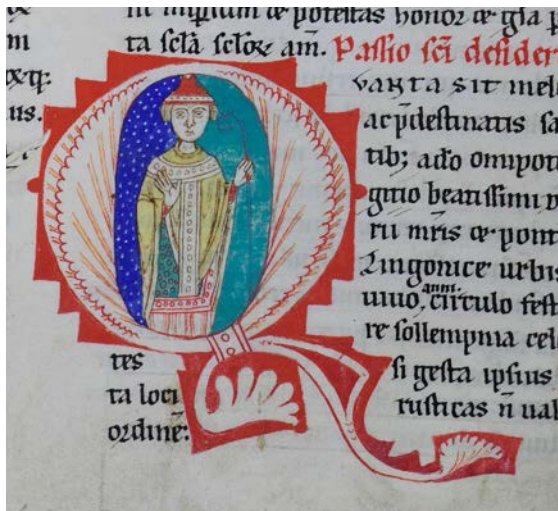 in imperium & potestas honor & gl̄a p
m ta sc̄la sc̄lor̄ am̄. Passio sc̄i desider
ext q:
us. VANTA SIT mel
ac p̄destinatis sa
tib; a dō omnipot
gitio beatissimi
rii m̄ris & pont
Lingonice urbis
uiuo, anni circulo fest
re sollempnia cel
tes si gesta ipsius
ta loci rusticas n̄ ual
ordinē: